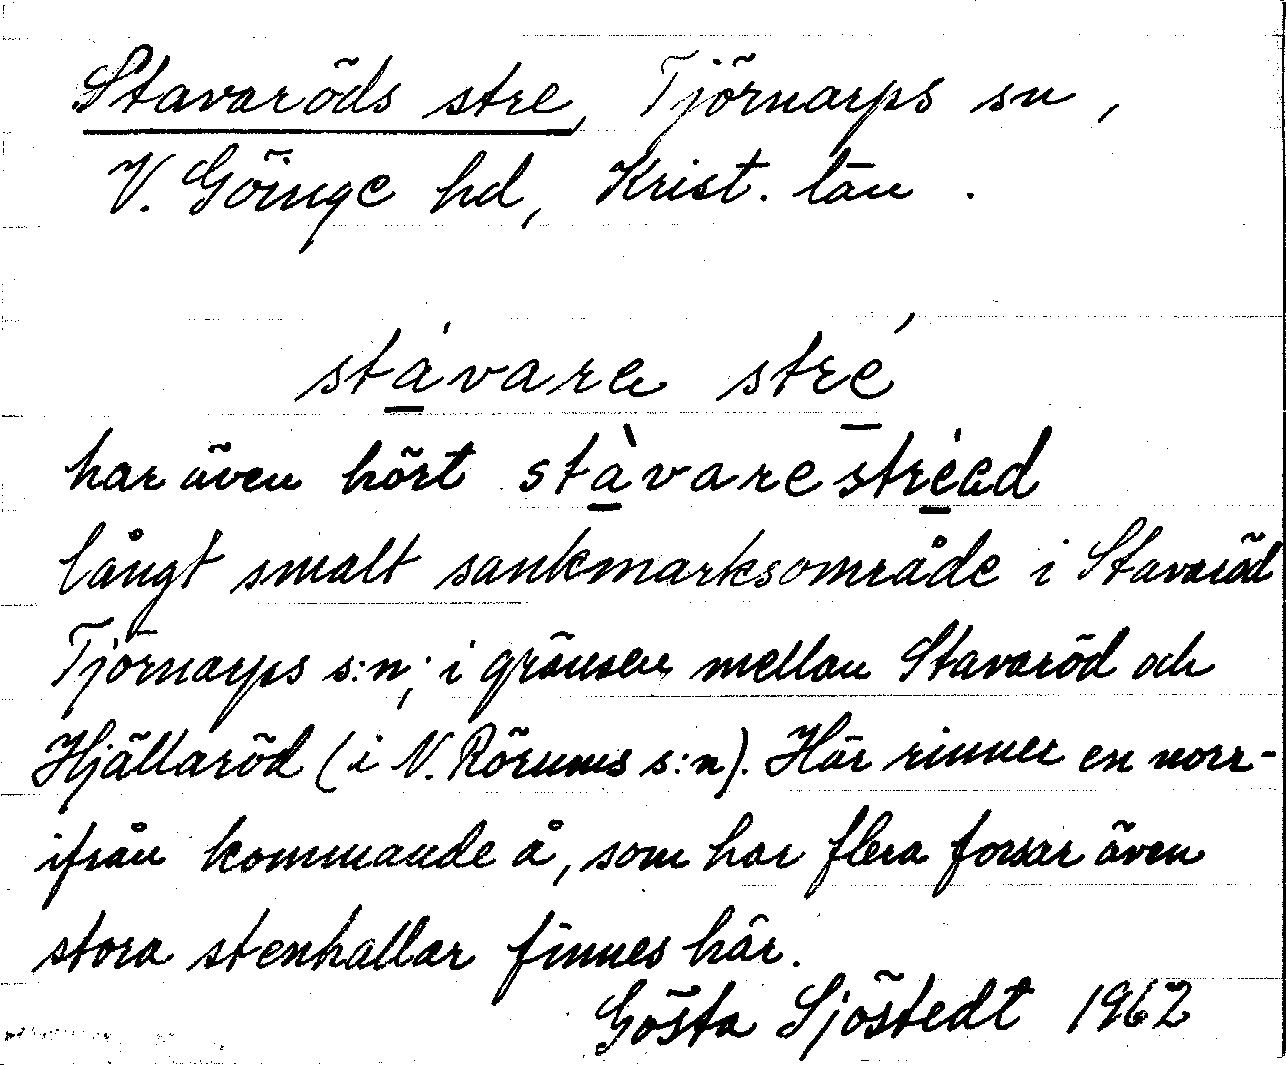 Stavaröds stre, Tjörnarps sn,
V. Göinge hd, Krist. län.
stávare stré
har även hört stàvarestréed
långt smalt sankmarksområde i Stavaröd
Tjörnarps s:n; i gränsen mellan Stavaröd och
Hjällaröd (i N. Rörums s:n). Här rinner en norr-
ifrån kommande å, som har flera forsar även
stora stenhallar finnes här.
Gösta Sjöstedt 1962